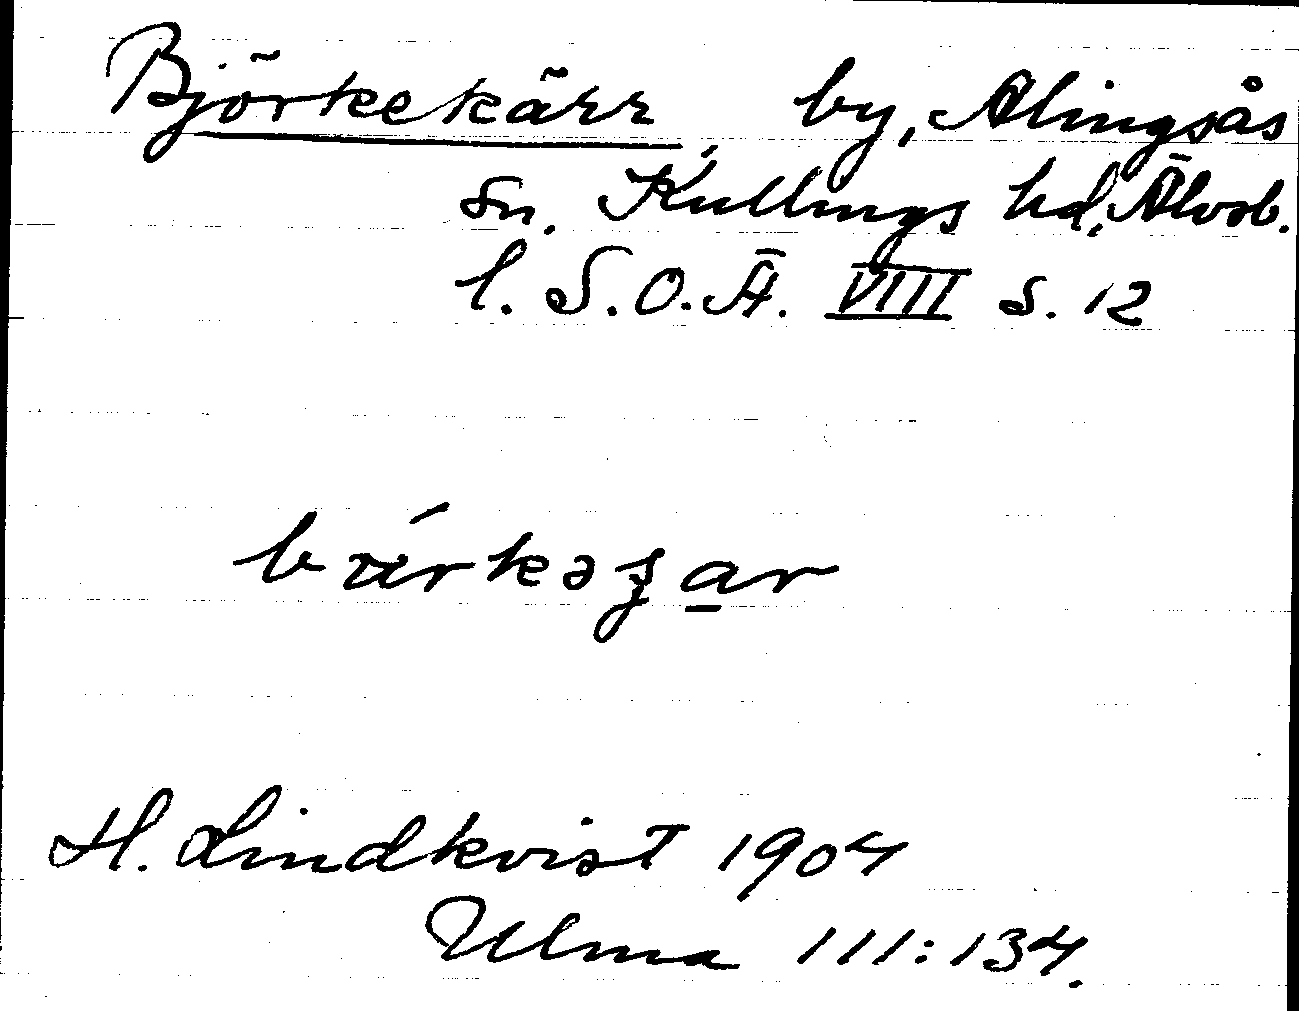 Björkekärr, by, Alingsås
sn. Kullings hd, Älvsb.
l. S.O.Ä. VIII s. 12
H. Lindkvist 1904
Ulma 111:134.